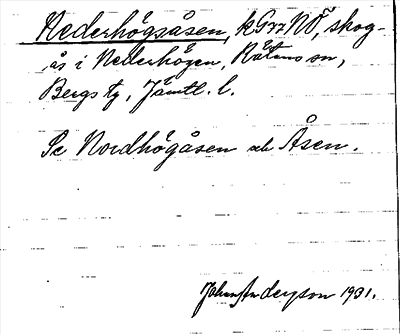 Nederhögsåsen, kG77NÖ, skog-
ås i Nederhögen, Rätans sn,
Bergs tg, Jämtl. l.
Se Nordhögåsen och Åsen.
Johan Anderson 1931.